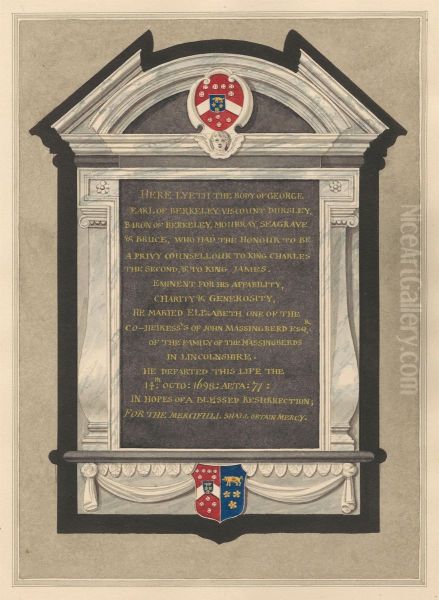 HERE LYETH THE BODY OF GEORGE
EARL OF BERKELEY, VISCOUNT DURSLEY,
BARON OF BERKELEY, MOUBRAY, SEAGRAVE
& BRUCE, WHO HAD THE HONOUR TO BE
A PRIVY COUNSELLOUR TO KING CHARLES
THE SECOND, & TO KING JAMES.
EMINENT FOR HIS AFFABILITY,
CHARITY & GENEROSITY,
HE MARIED ELISABETH ONE OF THE
CO-HEIRESS'S OF JOHN MASSINGBERD ESQR.
OF THE FAMILY OF THE MASSINGBERDS
IN LINCOLNSHIRE.
HE DEPARTED THIS LIFE THE
14TH: OCTO: 1698: AETA: 71:
IN HOPES OF A BLESSED RESURRECTION;
FOR THE MERCIFULL SHALL OBTAIN MERCY.
NiceArtGallery.com